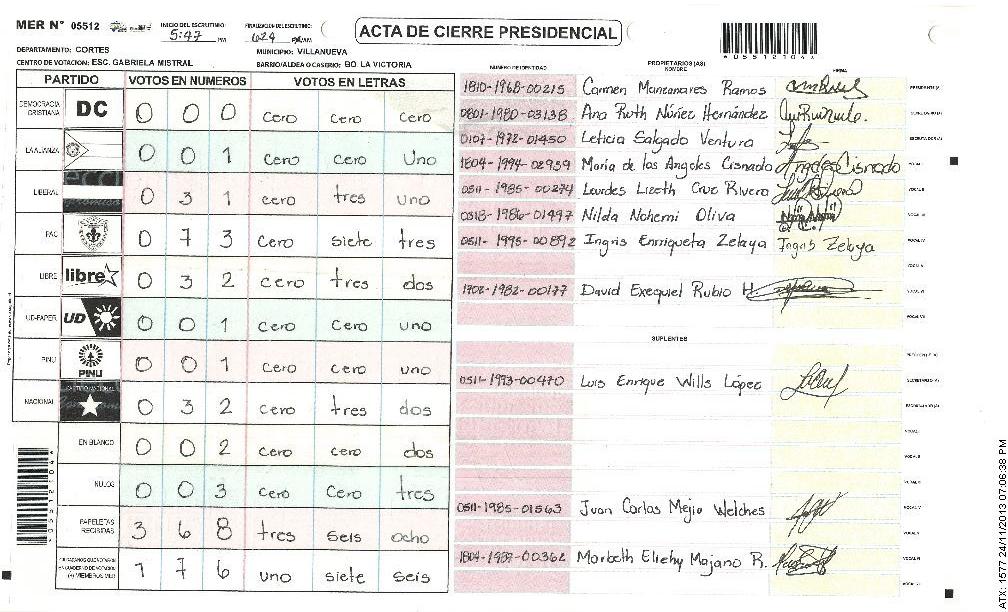 MER N° 05512 INICIO DEL ESCRUTINIO: 5:47 PM FINALIZACION DEL ESCRUTINIO: 6:24 PM/AM
ACTA DE CIERRE PRESIDENCIAL
*05512104*
DEPARTAMENTO: CORTES MUNICIPIO: VILLANUEVA
CENTRO DE VOTACION: ESC. GABRIELA MISTRAL BARRIO/ALDEA O CASERIO: BO LA VICTORIA
PARTIDO VOTOS EN NUMEROS VOTOS EN LETRAS
DEMOCRACIA CRISTIANA DC 0 0 0 cero cero cero
LA ALIANZA 0 0 1 cero cero uno
LIBERAL 0 3 1 cero tres uno
PAC 0 7 3 cero siete tres
LIBRE libre 0 3 2 cero tres dos
UD-FAPER UD 0 0 1 cero cero uno
PINU PINU 0 0 1 cero cero uno
NACIONAL PARTIDO NACIONAL 0 3 2 cero tres dos
EN BLANCO 0 0 2 cero cero dos
NULOS 0 0 3 cero cero tres
PAPELETAS RECIBIDAS 3 6 8 tres seis ocho
CIUDADANOS QUE VOTARON EN CUADERNO DE VOTACION (+) MIEMBROS MER 1 7 6 uno siete seis
NUMERO DE IDENTIDAD PROPIETARIOS (AS) NOMBRE FIRMA
1810-1968-00215 Carmen Manzanares Ramos PRESIDENTE (A)
0801-1980-03138 Ana Ruth Núñez Hernández SECRETARIO (A)
0107-1972-01450 Leticia Salgado Ventura ESCRUTADOR (A)
1804-1994-02959 María de los Angeles Cisnado Angeles Cisnado VOCAL I
0511-1985-00274 Lourdes Lizeth Cruz Rivera VOCAL II
0318-1986-01497 Nilda Nohemi Oliva VOCAL III
0511-1995-00892 Ingris Enriqueta Zelaya Ingris Zelaya VOCAL IV
VOCAL V
1708-1982-00177 David Exequiel Rubio H VOCAL VI
VOCAL VII
SUPLENTES
PRESIDENTE (A)
0511-1993-00470 Luis Enrique Wills López SECRETARIO (A)
ESCRUTADOR (A)
VOCAL I
VOCAL II
VOCAL III
0511-1985-01563 Juan Carlos Mejia Welches VOCAL IV
VOCAL V
1804-1987-00362 Marbeth Eliehy Majano R. VOCAL VI
VOCAL VII
ATX: 1577 24/11/2013 07:06:38 PM